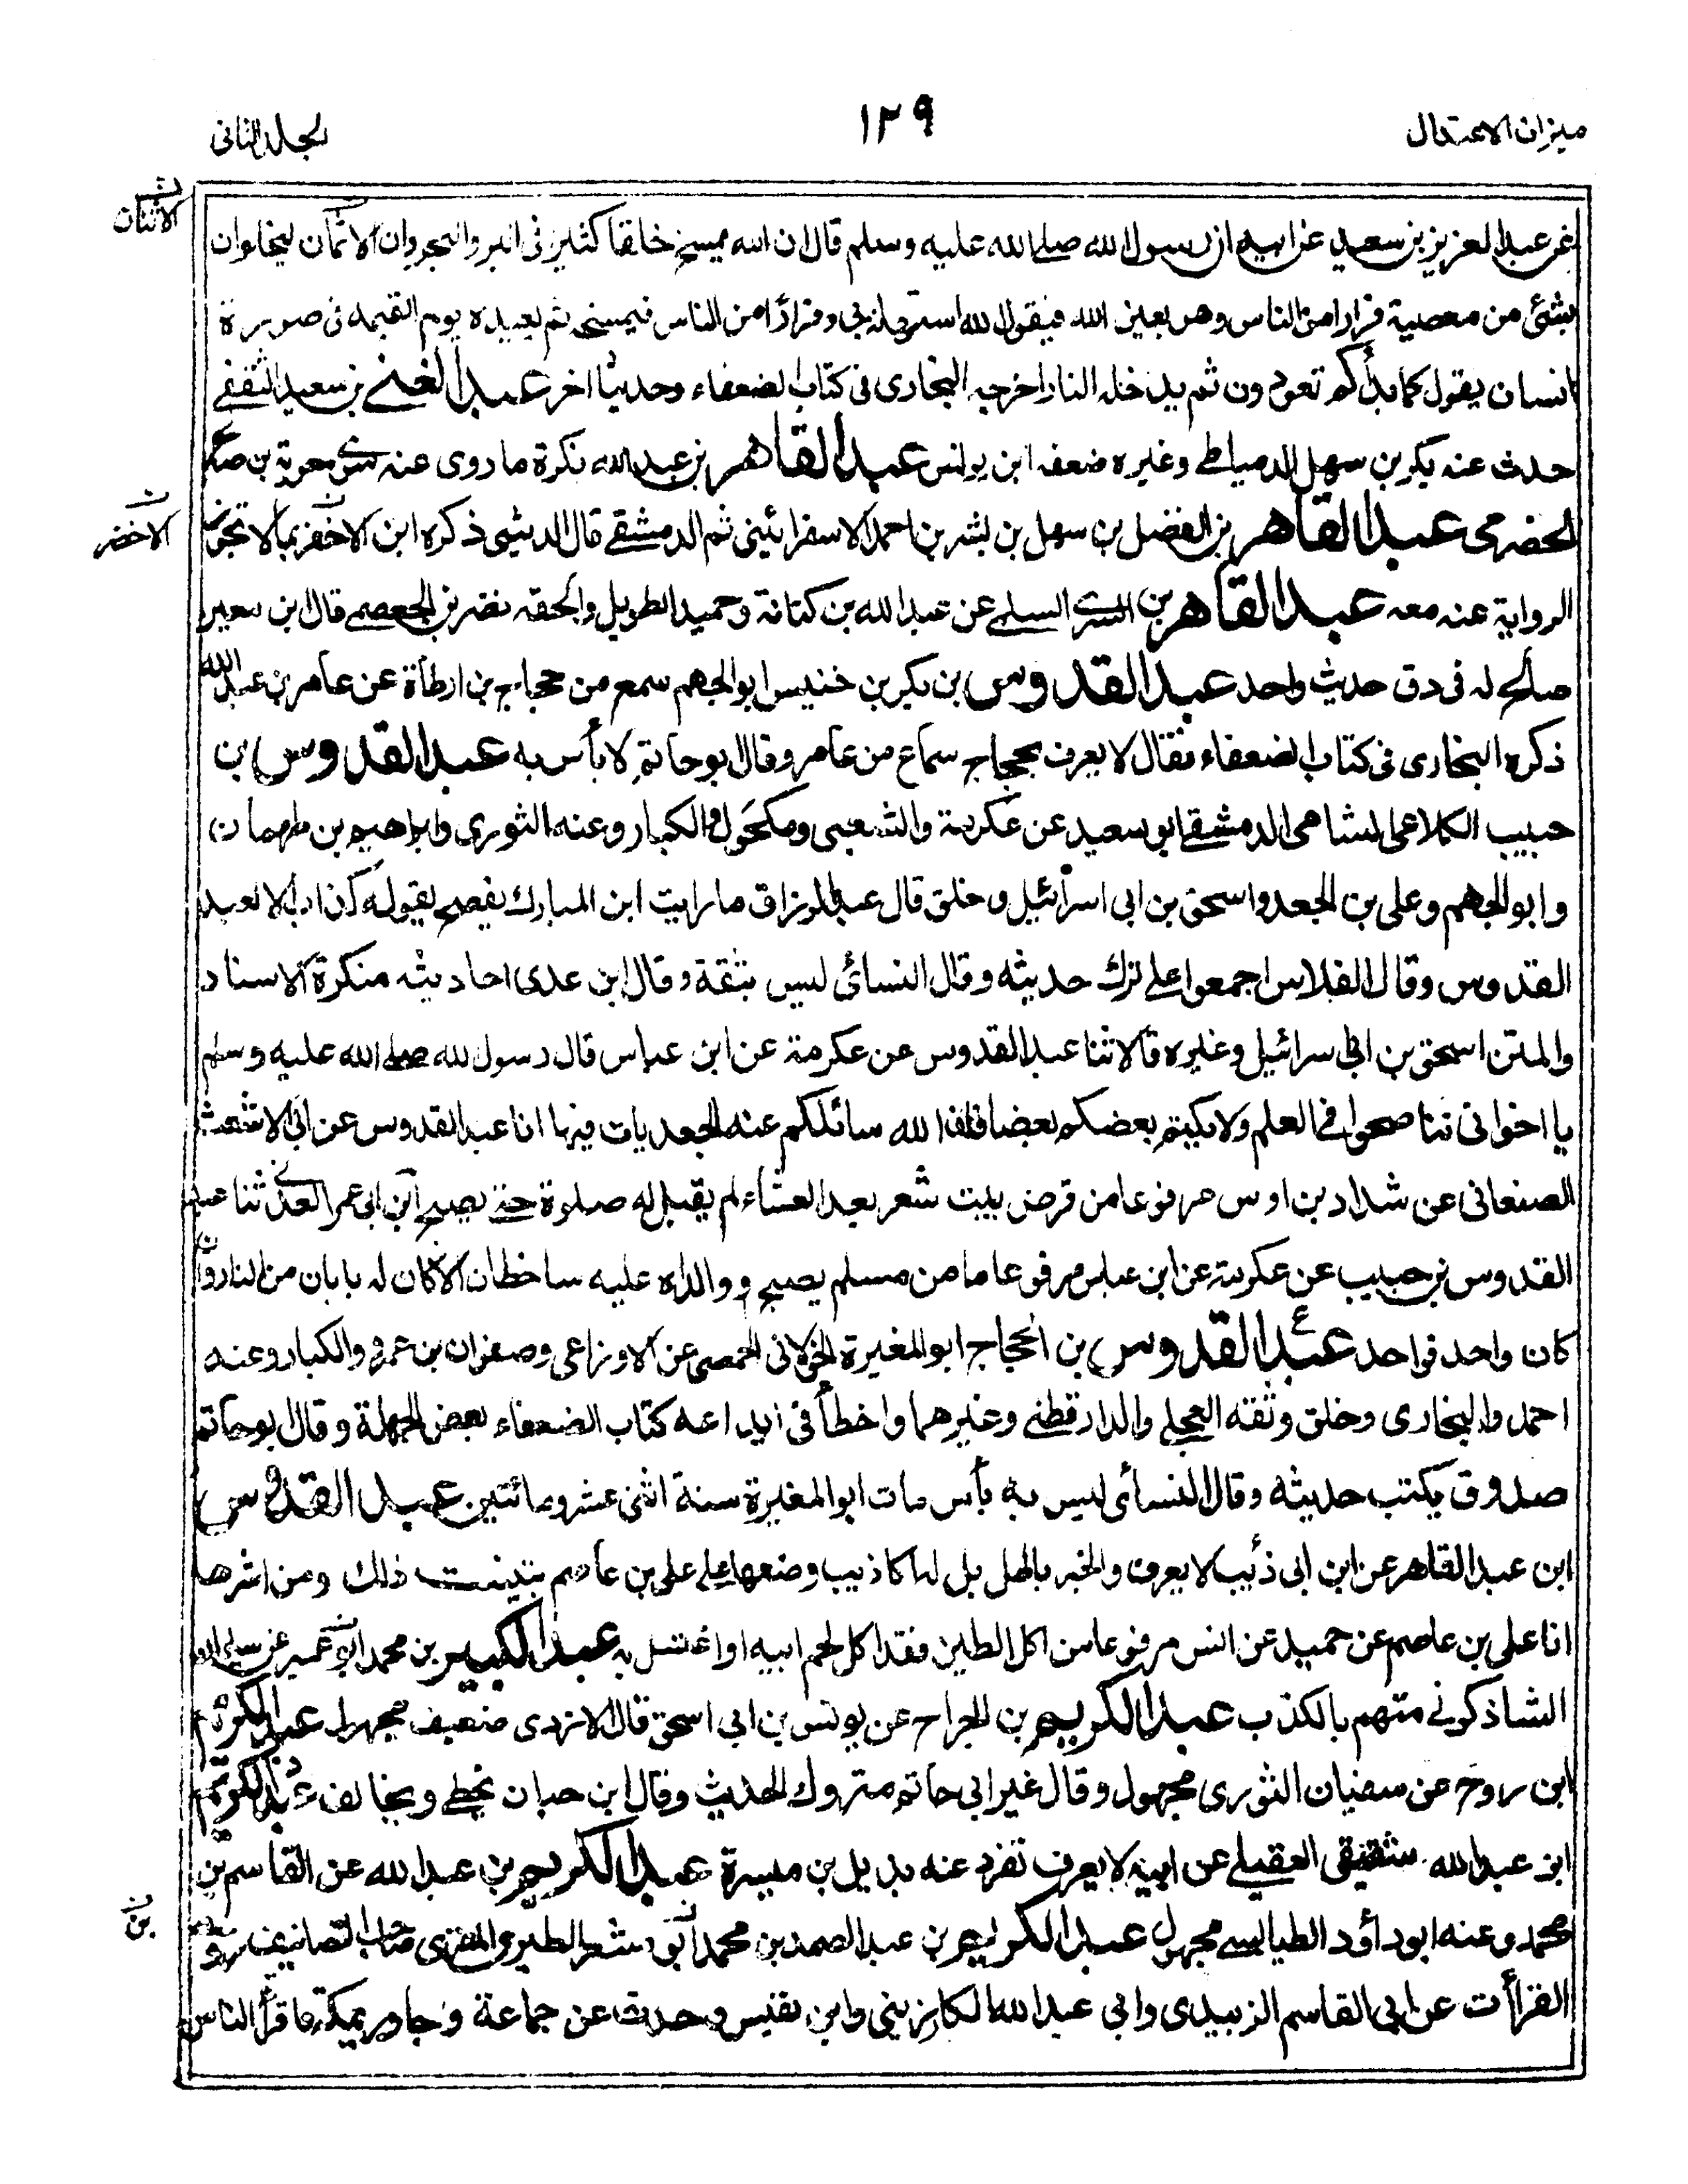 ميزان الاعتدال
١٢٩
الجلد الثانى
عن عبد العزيز بن سعيد عن ابيه ان رسول الله صلى الله عليه وسلم قال ان الله يمسخ خلقا كثيرا فى البر والبحر وان الانسان ليخلو
بشئ من معصية فرارا من الناس وهو بعين الله فيقول الله استهان بى وفرارا من الناس فيمسخ ثم يعيده يوم القيمة فى صورة
انسان يقول كما بدأكم تعودون ثم يدخله النار اخرجه البخارى فى كتاب الضعفاء وحديثا اخر عبد الغنى بن سعيد الثقفى
حدث عنه بكر بن سهل الدمياطى وغيره ضعفه ابن يونس عبد القاهر بن عبد الله نكرة ما روى عنه سوى معوية بن صالح
الحضرمى عبد القاهر بن الفضل بن سهل بن بشر بن احمد الاسفرائينى ثم الدمشقى قال الدبيثى ذكره ابن الاخضر بما لا تجوز
الرواية عنه معه عبد القاهر بن السرى السلمى عن عبد الله بن كنانة وحميد الطويل والحقه نصر بن الجهضمى قال ابن معين
صالح له فى دق حديث واحد عبد القدوس بن بكر بن خنيس ابو الجهم سمع من حجاج بن ارطأة عن عامر بن عبد الله
ذكره البخارى فى كتاب الضعفاء فقال لا يعرف بحجاج سماع من عامر وقال ابو حاتم لا بأس به عبد القدوس بن
حبيب الكلاعى الشامى الدمشقى ابو سعيد عن عكرمة والشعبى ومكحول والكبار وعنه الثورى وابراهيم بن طهمان
وابو الجهم وعلى بن الجعد واسحق بن ابى اسرائيل وخلق قال عبد الرزاق ما رايت ابن المبارك يفصح بقوله كذاب الا لعبد
القدوس وقال الفلاس اجمعوا على ترك حديثه وقال النسائى ليس بثقة وقال ابن عدى احاديثه منكرة الاسناد
والمتن اسحق بن ابى سرائيل وغيره قالا ثنا عبد القدوس عن عكرمة عن ابن عباس قال رسول الله صلى الله عليه وسلم
يا اخوانى تناصحوا فى العلم ولا يكتم بعضكم بعضا فان الله سائلكم عنه الجعديات فيها انا عبد القدوس عن ابى الاشعث
الصنعانى عن شداد بن اوس مرفوعا من قرض بيت شعر بعد العشاء لم يقبل له صلوة حتى يصبح ابن ابى عمر العدنى ثنا عبد
القدوس بن حبيب عن عكرمة عن ابن عباس مرفوعا ما من مسلم يصبح ووالداه عليه ساخطان الا كان له بابان من النار وان
كان واحد فواحد عبد القدوس بن الحجاج ابو المغيرة الخولانى الحمصى عن الاوزاعى وصفوان بن عمرو والكبار وعنه
احمد والبخارى وخلق وثقه العجلى والدارقطنى وغيرهما واخطأ فى ايداعه كتاب الضعفاء بعض الجهلة وقال ابو حاتم
صدوق يكتب حديثه وقال النسائى ليس به بأس مات ابو المغيرة سنة اثنى عشر ومائتين عبد القدوس
ابن عبد القاهر عن ابن ابى ذئب لا يعرف والخبر باطل بل لها كاذيب وضعها على على بن عاصم تبينت ذلك ومن اشرها
انا على بن عاصم عن حميد عن انس مرفوعا من اكل الطين فقد اكل لحم ابيه او اغتسل به عبد الكبير بن محمد ابو عمير عن سليمان
الشاذكونى متهم بالكذب عبد الكريم بن الجراح عن يونس بن ابى اسحق قال الازدى ضعيف مجهول عبد الكريم
ابن روح عن سفيان الثورى مجهول وقال غير ابى حاتم متروك الحديث وقال ابن حبان يخطى ويخالف عبد الكريم
ابن عبد الله شقيق العقيلى عن ابيه لا يعرف تفرد عنه بديل بن ميسرة عبد الكريم بن عبد الله عن القاسم بن
محمد وعنه ابو داؤد الطيالسى مجهول عبد الكريم بن عبد الصمد بن محمد ابو معشر الطبرى المقرى صاحب التصانيف
القرأت عن ابى القاسم الزبيدى وابى عبد الله الكارزينى وابن نفيس وحدث عن جماعة وجاور بمكة فاقرأ الناس
الاخضر
بن